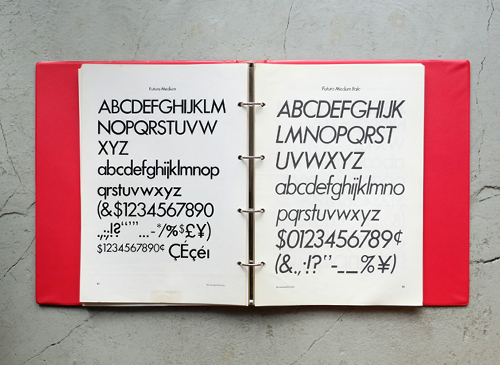 Futura Medium
ABCDEFGHIJKLM
NOPQRSTUVW
XYZ
abcdefghijklmnop
qrstuvwxyz
(&$1234567890
.,:;!?“”‘’...-*/%$£¥)
$1234567890¢ ÇÉçéı
Futura Medium Italic
ABCDEFGHIJK
LMNOPQRST
UVWXYZ
abcdefghijklmno
pqrstuvwxyz
$0123456789¢
(&.,:!?‘’-—%¥)